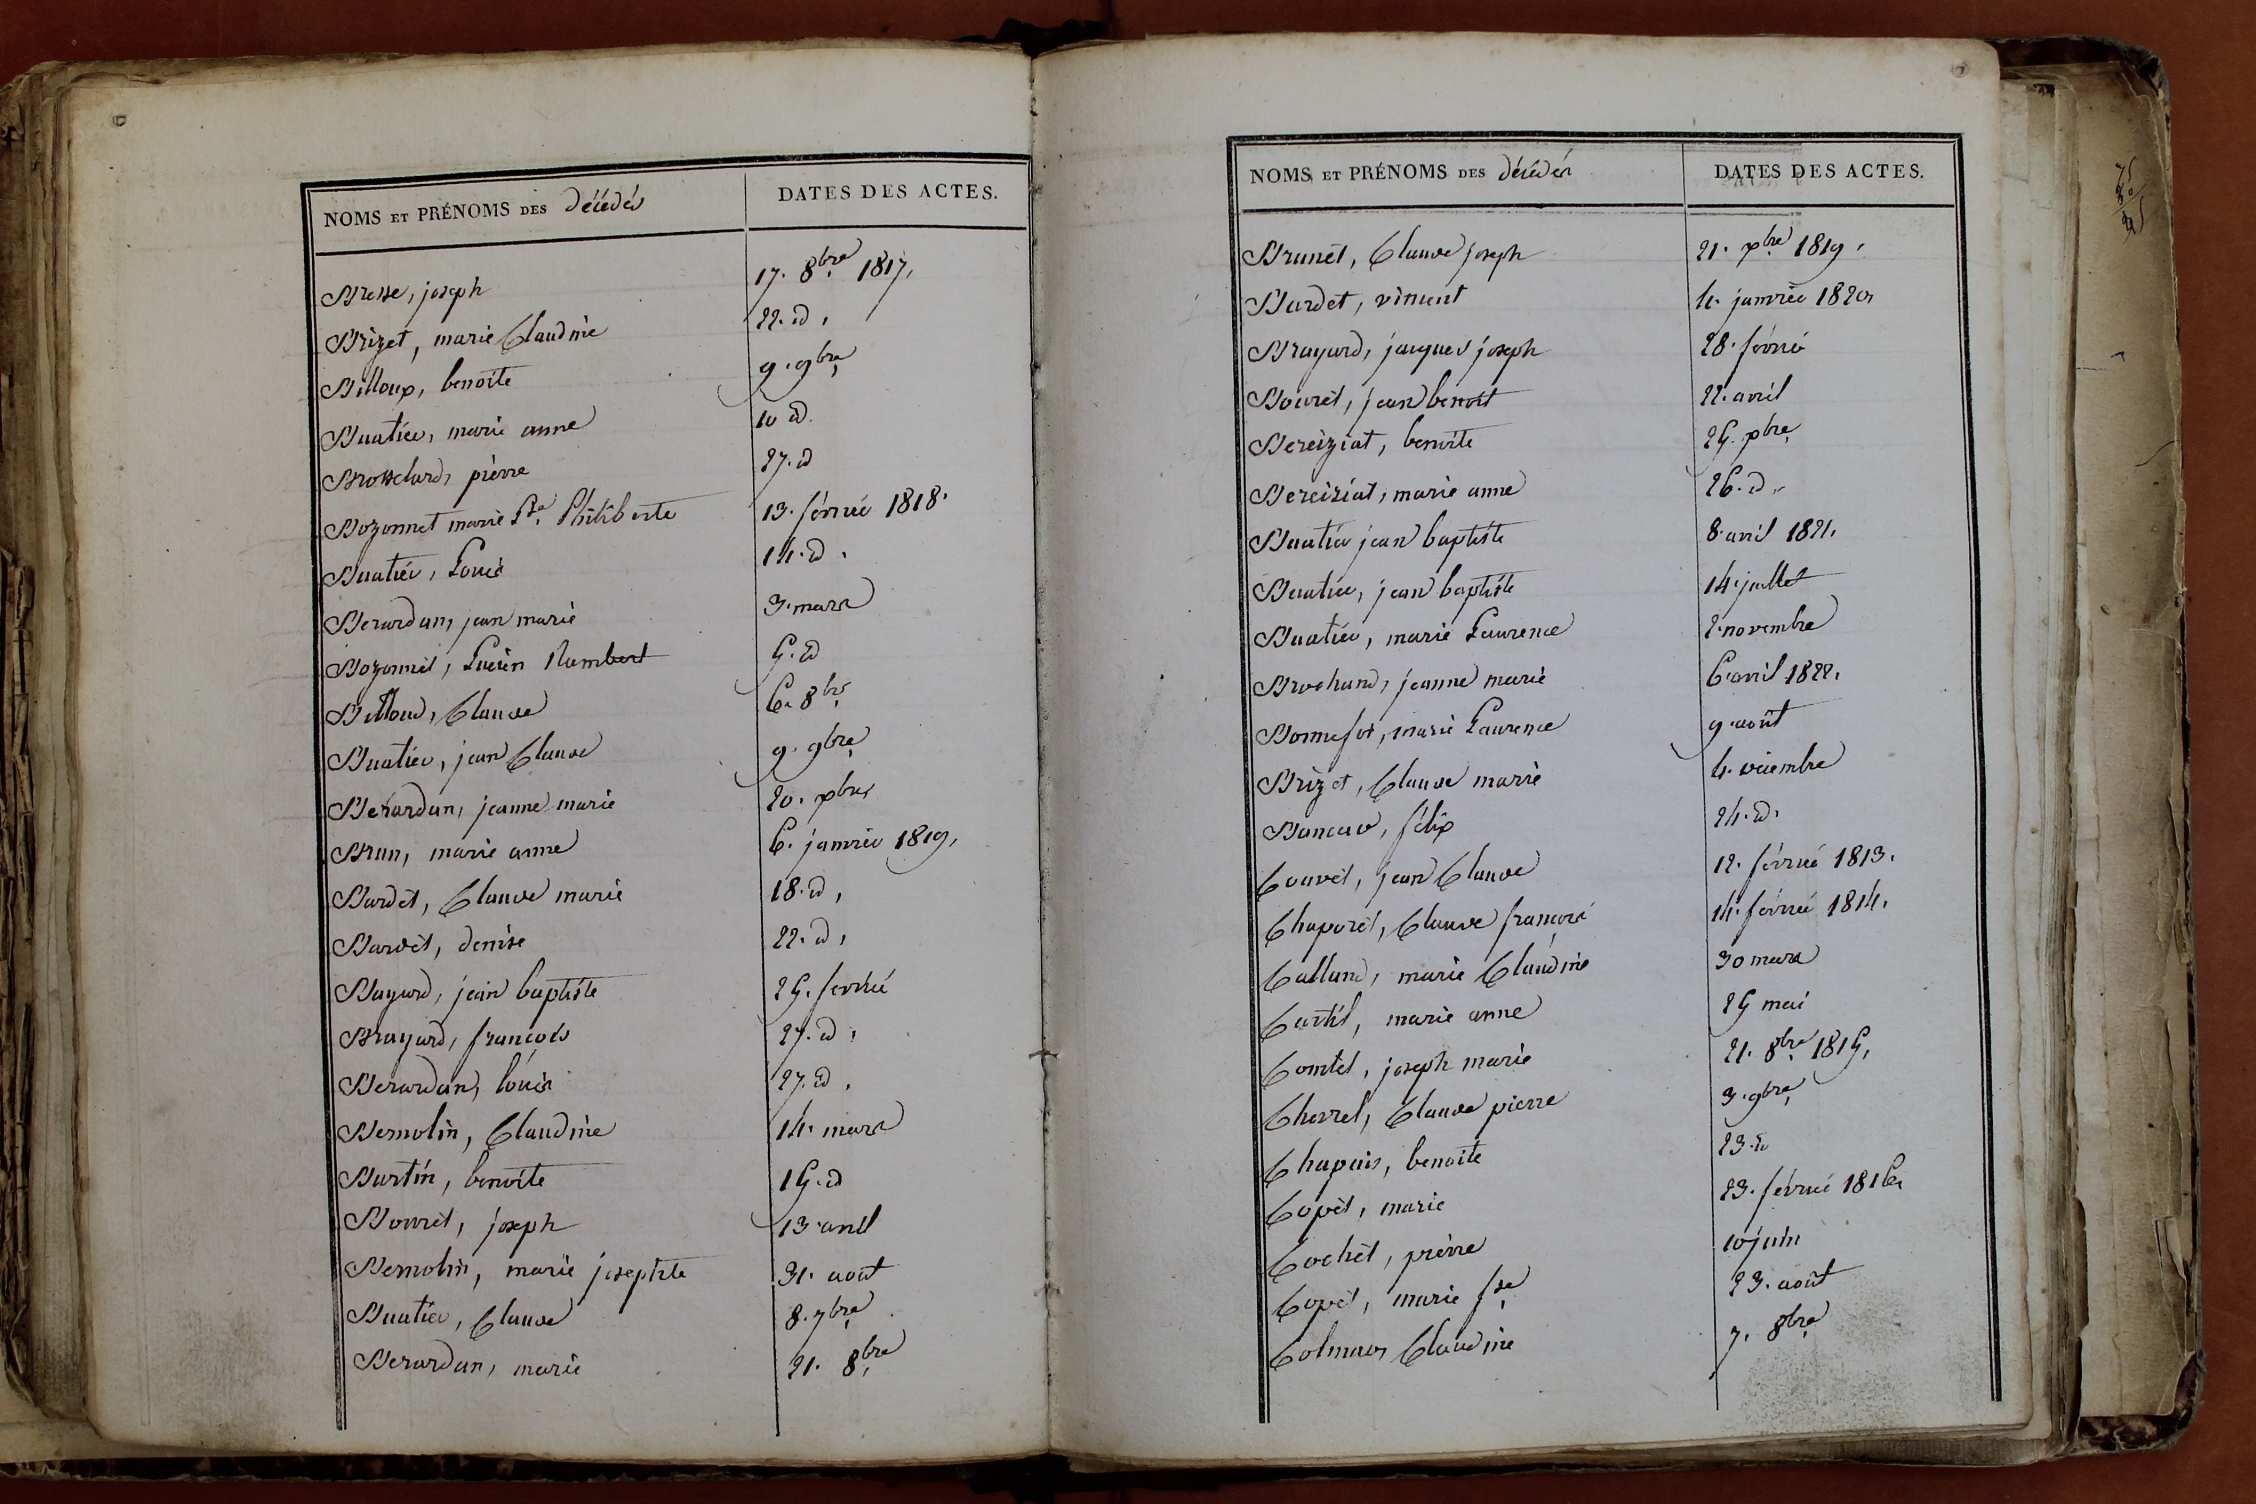 NOMS ET PRÉNOMS DES décédés DATES DES ACTES.
Bresse, joseph 17. 8bre 1817,
Brizet, marie Claudine 22. d,
Billoux, benoite 9. 9bre
Buatier, marie anne 10 d.
Brosselard, pierre 27. d
Bozonnet marie Philiberte 13. février 1818.
Buatier, Louis 14. d.
Berardan, jean marie 3. mars
Bozonnet, Lucien Rambert 5. d
Billoud, Claude 6. 8bre
Buatier, jean Claude 9. 9bre
Berardan, jeanne marie 20. xbre
Brun, marie anne 6. janvier 1819,
Bardet, Claude marie 18. d,
Bardet, denise 22. d,
Bayard, jean baptiste 25. février
Brayard, françois 27. d,
Berardan, louis 27. d.
Bernolin, Claudine 14. mars
Burtin, benoite 15. d
Bouret, joseph 13 avril
Bernolin, marie josephte 31. août
Buatier, Claude 8. 7bre
Berardan, marie 21. 8bre
NOMS ET PRÉNOMS DES décédés DATES DES ACTES.
Brunet, Claude joseph 21. xbre 1819,
Bardet, vincent 4. janvier 1820,
Brayard, jacques joseph 28. février
Bouret, jean benoit 22. avril
Bereiziat, benoite 25. xbre
Bereiziat, marie anne 26. d.
Buatier jean baptiste 8. avril 1821,
Buatier, jean baptiste 14. juillet
Buatier, marie Laurence 2. novembre
Brochand, jeanne marie 6. avril 1822,
Bonnefoi, marie Laurence 9. août
Brizet, Claude marie 4. décembre
félix 24. d.
Couvet, jean Claude 12. février 1813.
Chaparet, Claude françois 14. février 1814.
Calland, marie Claudine 30 mars
marie anne 25 mai
Comtet, joseph marie 21. 8bre 1815,
Chevrel, Claude pierre 3. 9bre
Chapuis, benoite 23. d
Copet, marie 23. février 1816,
Cochet, pierre 10 juin
Copet, marie fse 23. août
Claudine 7. 8bre